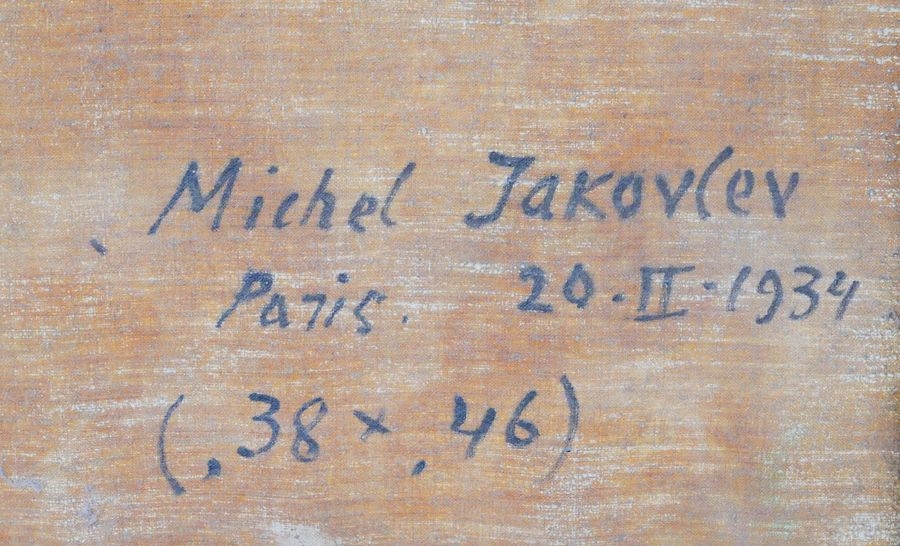 Michel Jakovlev
Paris. 20.II.1934
(.38 x .46)